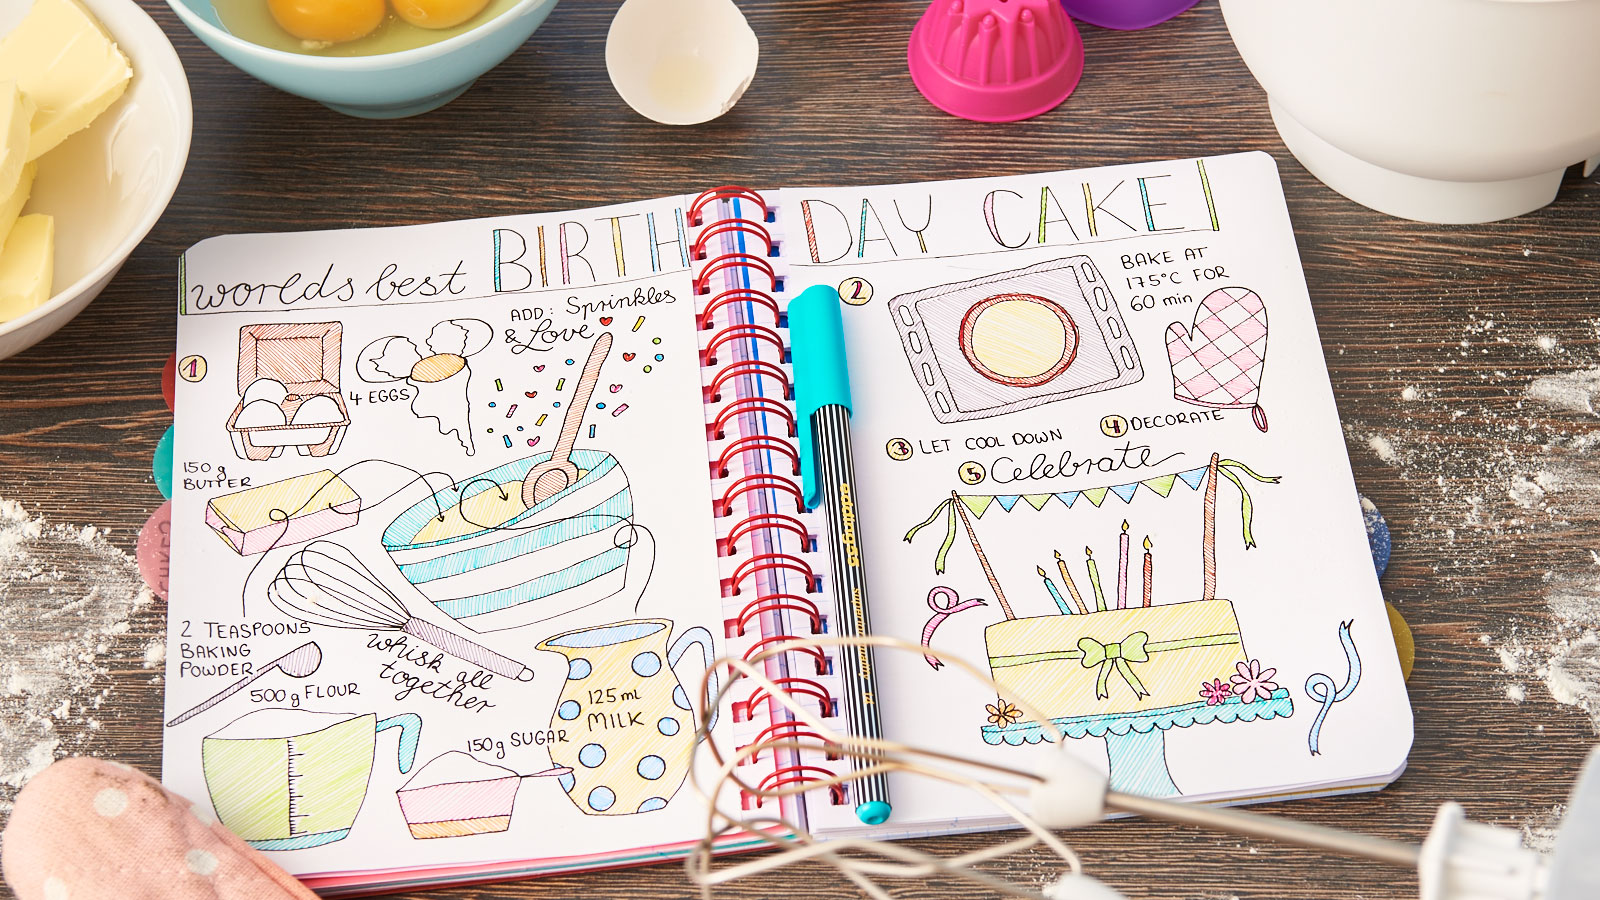 worlds best BIRTHDAY CAKE!
ADD: Sprinkles
& Love
1
4 EGGS
150 g
BUTTER
2 TEASPOONS
BAKING
POWDER
whisk all
together
500 g FLOUR
150 g SUGAR
125 ml
MILK
2
BAKE AT
175°C FOR
60 min
3 LET COOL DOWN
4 DECORATE
5 Celebrate
edding 55